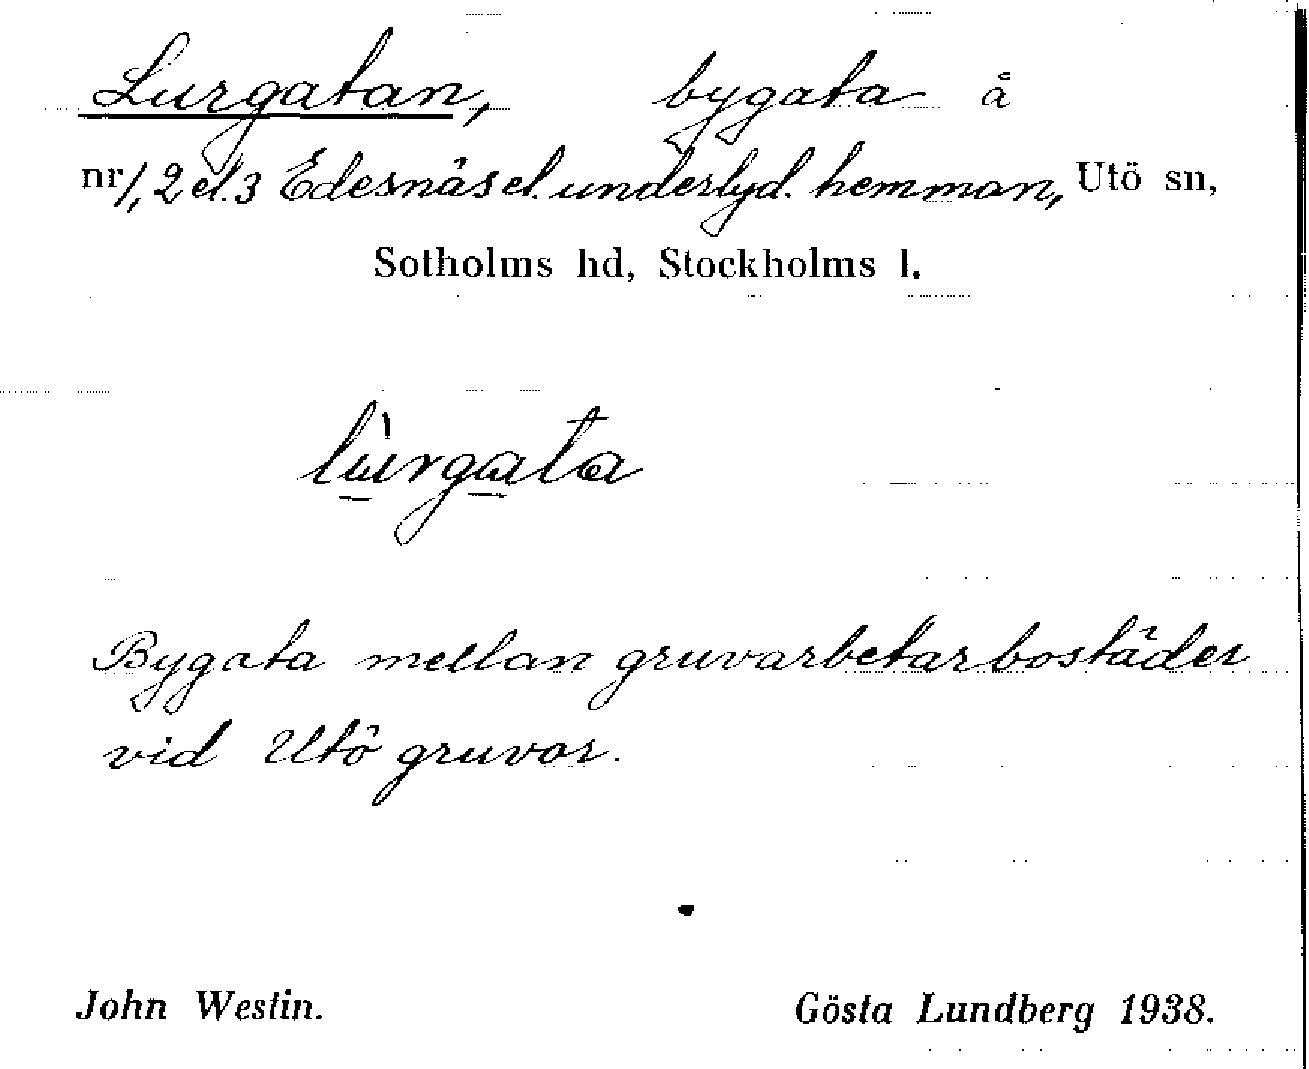 Lurgatan, bygata å
nr 1, 2 el. 3 Edesnäs el. underlyd. hemman, Utö sn,
Sotholms hd, Stockholms l.
lùrgata
Bygata mellan gruvarbetarbostäder
vid Utö gruvor.
John Westin. Gösta Lundberg 1938.